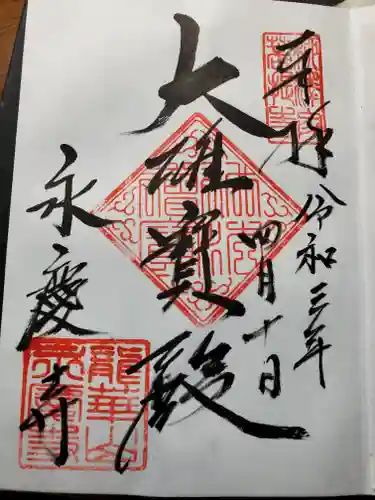 奉拝
令和三年
四月十日
大雄寳殿
永慶寺
龍華山
永慶寺